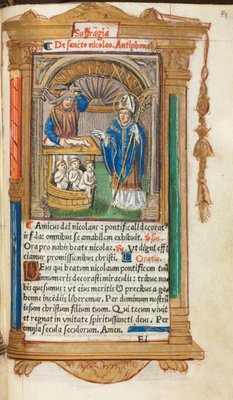 Suffragia
De sancto nicolao. Antiphona
Amicus dei nicolaus: pontificali decorat⁹
ifulas omnibus se amabilem exhibuit.
Ora pro nobis beate nicolae. Ut digni effi
ciamur promissionibus christi. Oratio.
Deus qui beatum nicolaum pontificem tuū
meritis decorasti miraculis: tribue nos
bis quesumus: vt eius meritis & precibus a ge
henne incēdiis liberemur. Per dominum nostrū
iesum christum filium tuum. Qui tecum viuit
et regnat in vnitate spiritussancti deus. Per
omnia secula seculorum. Amen.